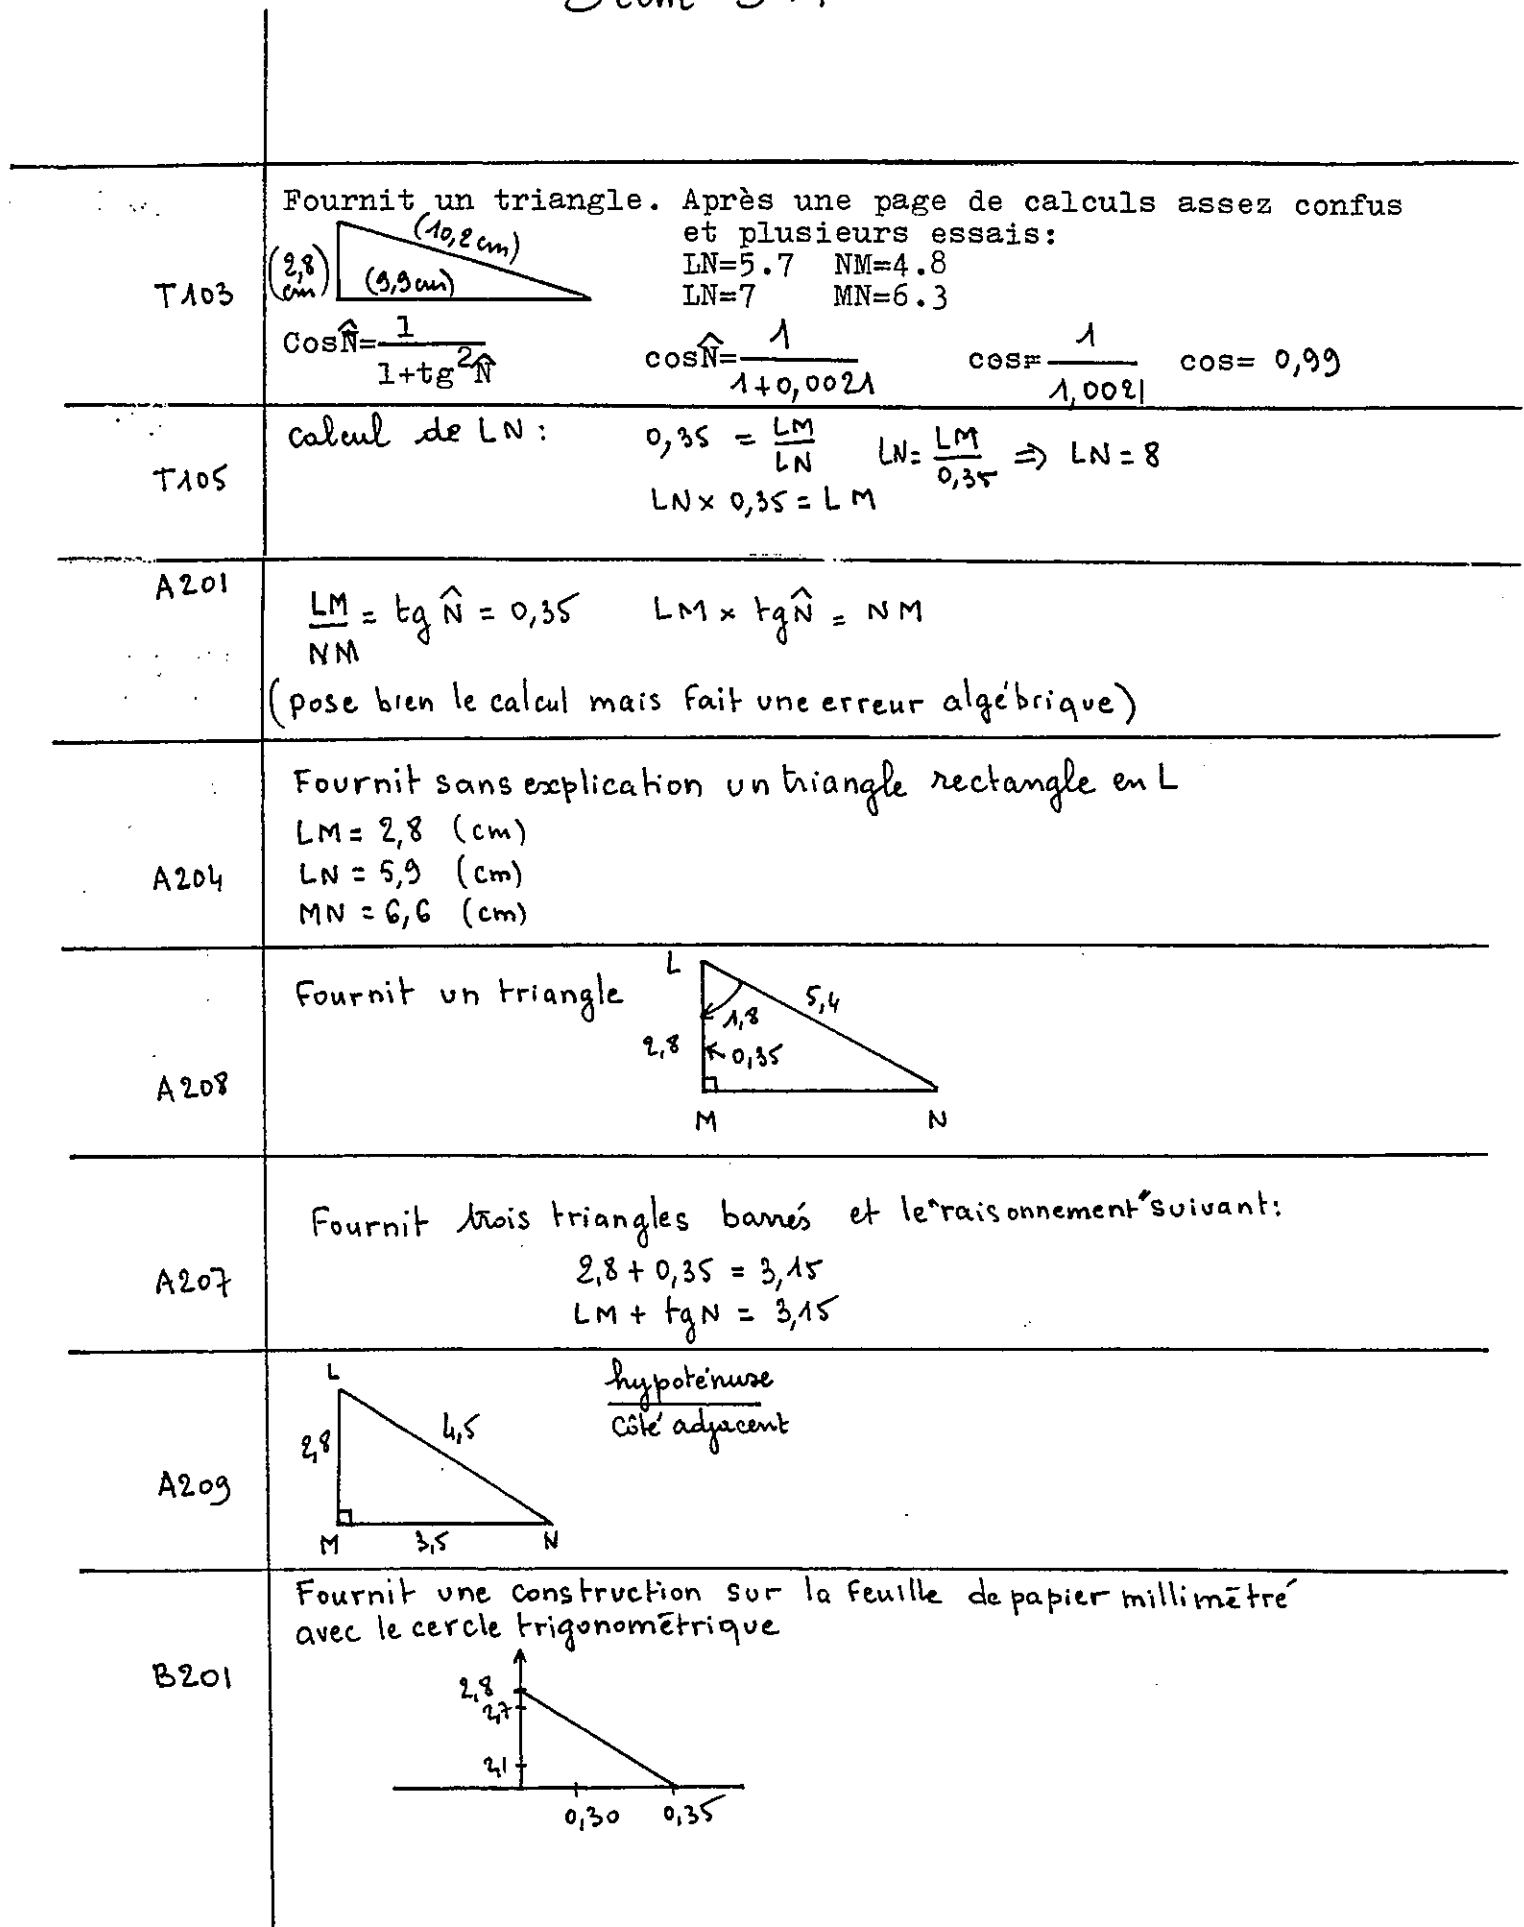 T103
Fournit un triangle. Après une page de calculs assez confus
et plusieurs essais:
(10,2 cm)
(2,8 cm)
(9,9 cm)
LN=5.7 NM=4.8
LN=7 MN=6.3
CosN̂=1/(1+tg²N̂) cosN̂=1/(1+0,0021) cos=1/1,0021 cos= 0,99
T105
calcul de LN: 0,35 = LM/LN LN= LM/0,35 ⇒ LN = 8
LN × 0,35 = LM
A201
LM/NM = tg N̂ = 0,35 LM × tg N̂ = NM
(pose bien le calcul mais fait une erreur algébrique)
A204
Fournit sans explication un triangle rectangle en L
LM = 2,8 (cm)
LN = 5,9 (cm)
MN = 6,6 (cm)
A208
Fournit un triangle
L
5,4
1,8
2,8
0,35
M N
A207
Fournit trois triangles barrés et le "raisonnement" suivant:
2,8 + 0,35 = 3,15
LM + tg N = 3,15
A209
L
hypoténuse
Côté adjacent
4,5
2,8
M 3,5 N
B201
Fournit une construction sur la feuille de papier millimētré
avec le cercle trigonomētrique
2,8
2,7
2,1
0,30 0,35